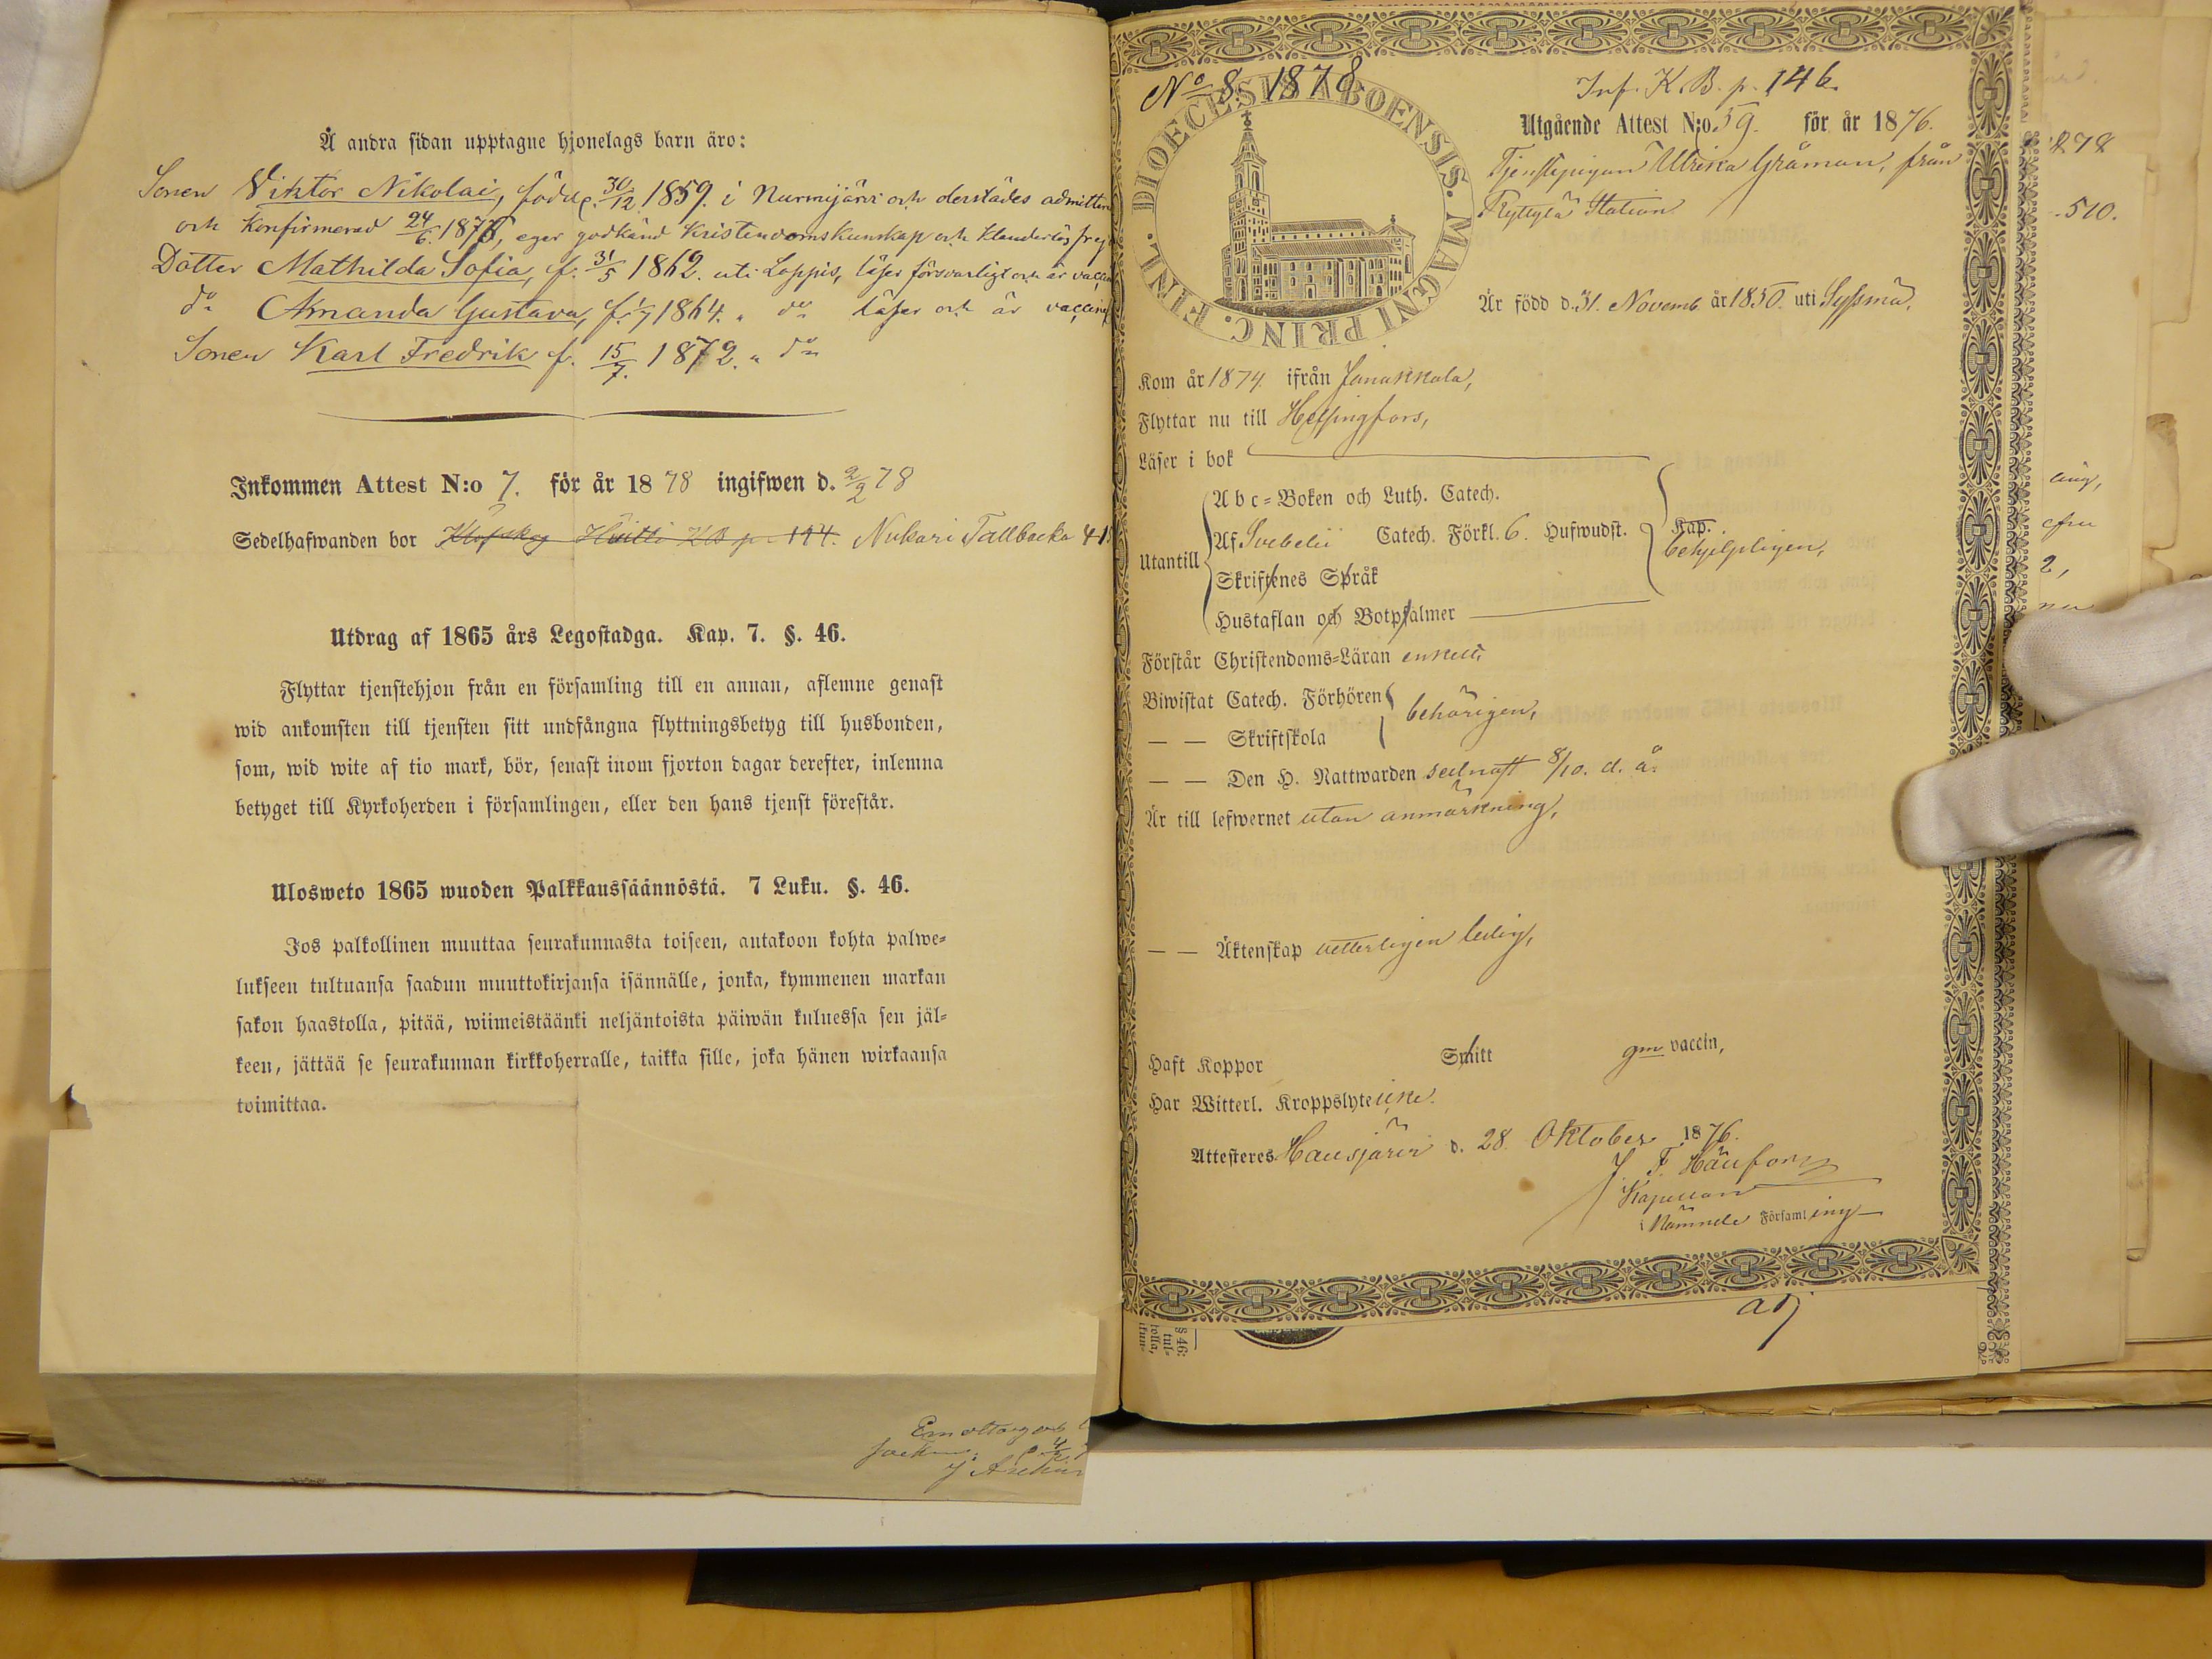 Å andra sidan upptagne hjonelags barn äro:
Sonen Viktor Nikolai, född d. 30/12 1859. i Nurmijärvi och derstädes admitter
och Konfirmerad 24/6. 1876, eger godkänd Kristendomskunskap och klanderlös frej
Dotter Mathilda Sofia, f. 31/5 1862. uti Loppis, läser försvarligt och är vacc
do Amanda Gustava, f. 1/7 1864. " do läser och är vaccin
Sonen Karl Fredrik f. 15/7. 1872. " do
Inkommen Attest N:o 7. för år 1878 ingifwen d. 2/2 78
Sedelhafwanden bor Nukari Tallbacka 41
Utdrag af 1865 års Legostadga. Kap. 7. §. 46.
Flyttar tjenstehjon från en församling till en annan, aflemne genast
wid ankomsten till tjensten sitt undfångna flyttningsbetyg till husbonden,
som, wid wite af tio mark, bör, senast inom fjorton dagar derefter, inlemna
betyget till Kyrkoherden i församlingen, eller den hans tjenst förestår.
Ulosweto 1865 wuoden Palkkaussäännöstä. 7 Luku. §. 46.
Jos palkollinen muuttaa seurakunnasta toiseen, antakoon kohta palwe-
lukseen tultuansa saadun muuttokirjansa isännälle, jonka, kymmenen markan
sakon haastolla, pitää, wiimeistäänki neljäntoista päiwän kuluessa sen jäl-
keen, jättää se seurakunnan kirkkoherralle, taikka sille, joka hänen wirkaansa
toimittaa.
No 8. 1878
DIOECESIS ABOENSIS. MAGNI PRINC. FINL.
Inf. K. B. p. 146.
Utgående Attest N:o 59. för år 1876.
Tjenstepigan Ulrika Gråman, från
Ryttylä Station
Är född d. 31. Novemb. år 1850. uti Syssmä.
Kom år 1874 ifrån Janakkala,
Flyttar nu till Helsingfors,
Läser i bok
Utantill
Abc-Boken och Luth. Catech.
Af Svebelii Catech. Förkl. 6. Hufwudst.
Skriftenes Språk
Hustaflan och Botpsalmer
Kap.
behjelpligen,
Förstår Christendoms-Läran enkelt,
Biwistat Catech. Förhören
— — Skriftskola
behörigen,
— — Den H. Nattwarden sednast 8/10. d. å.
Är till lefwernet utan anmärkning,
— — Äktenskap vetterligen ledig,
Haft Koppor Smitt gm vaccin,
Har Witterl. Kroppslyte icke.
Attesteres Hausjärvi d. 28. Oktober 1876.
Kapellan
i Nämnde Församling
278
510.
§ 46:
tul-
tolla,